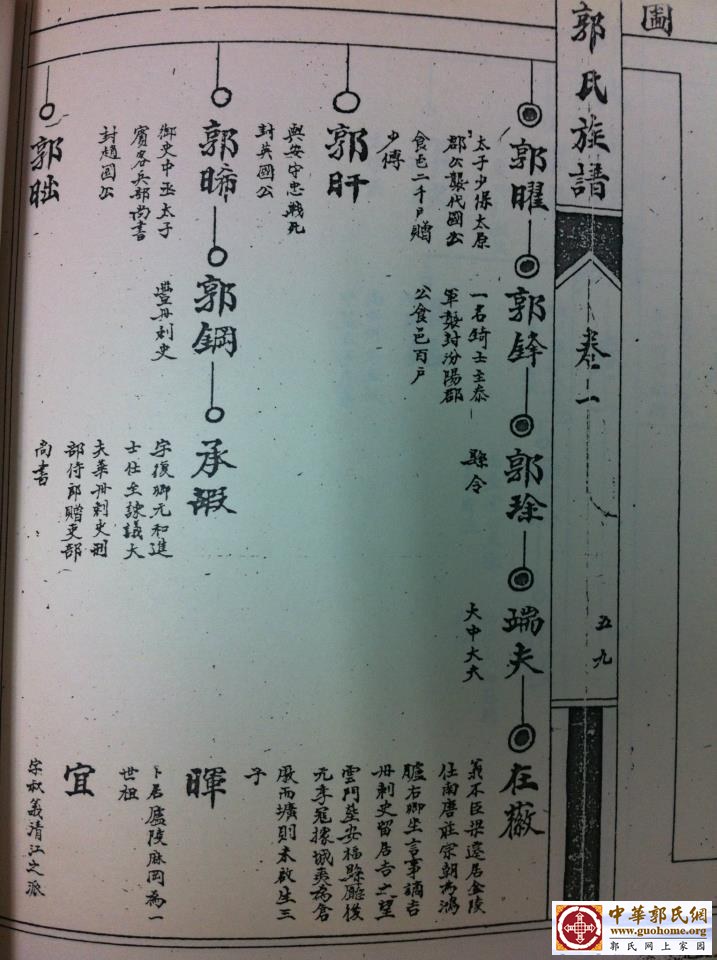 圖
郭氏族譜
卷一
五九
郭曜
太子少保太原
郡公襲代國公
食邑二千戶贈
少傅
郭鋒
一名錡士主泰
軍襲封汾陽郡
公食邑百戶
郭
縣令
瑞夫
大中大夫
在徽
義不臣梁遷居金陵
仕南唐莊宗朝為鴻
臚右卿坐言事謫吉
州刺史留居吉之望
雲門塟安福縣廳後
元季冦據城夷為倉
廒而壙則未啟生三
子
郭旰
與安守忠戰死
封英國公
郭晞
御史中丞太子
賓客兵部尚書
封趙國公
郭鋼
豐州刺史
承嘏
字復卿元和進
士仕至諫議大
夫華州刺史刑
部侍郎贈吏部
尚書
暉
卜居廬陵麻岡為一
世祖
宜
字秋義清江之派
郭昢
中華郭氏網
www.guohome.org
郭氏网上家园